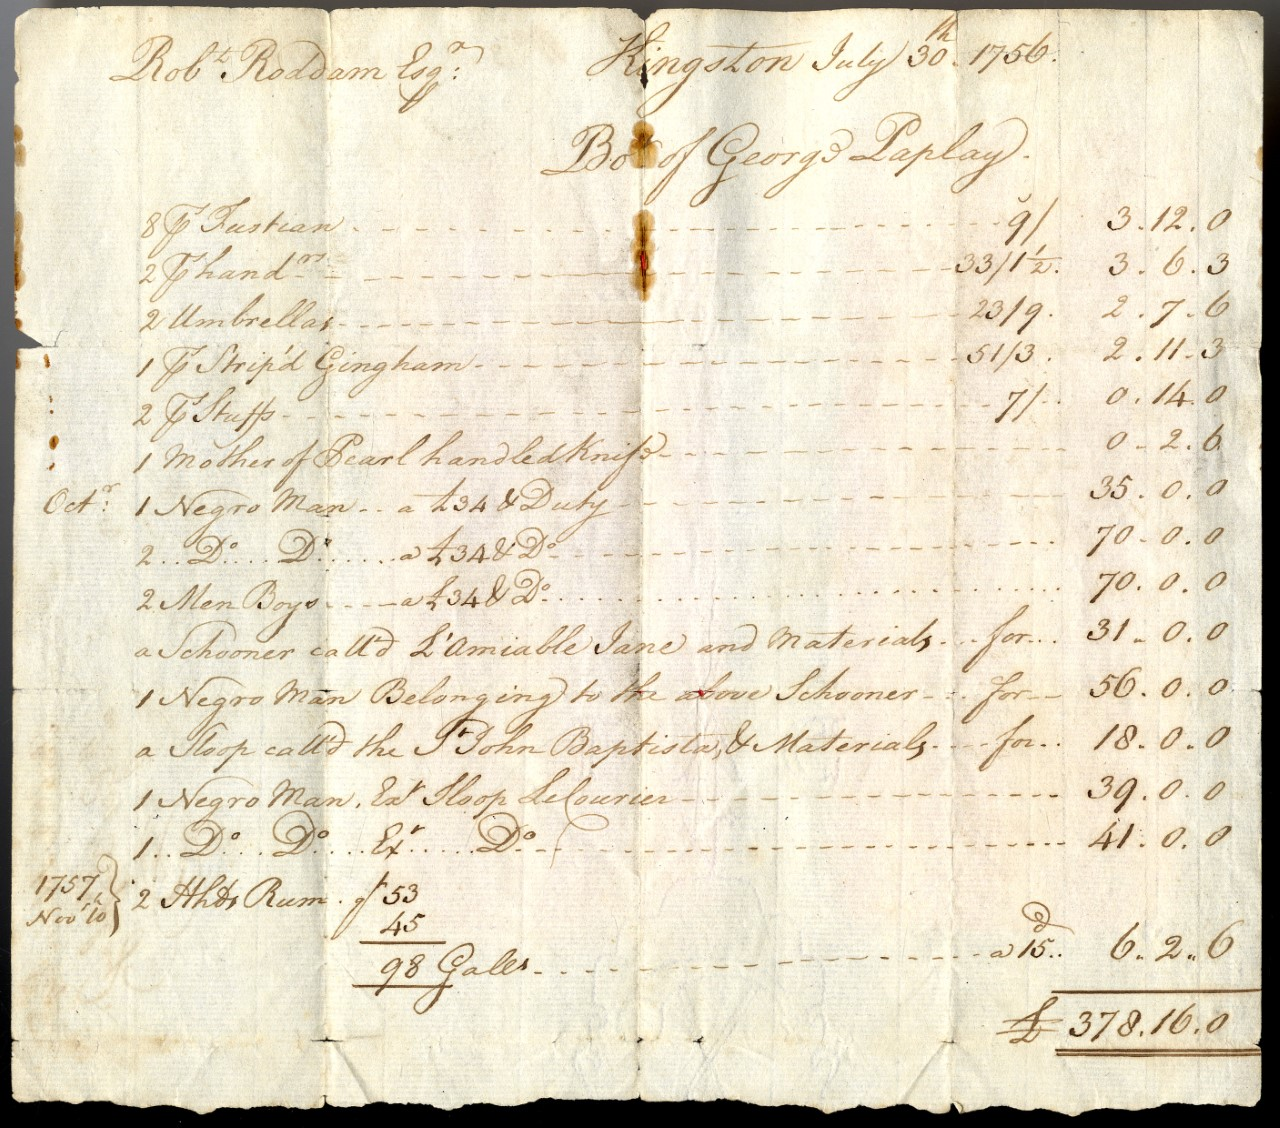 Robt. Roddam Esqr: Kingston July 30th. 1756.
Bot of George Paplay.
8 Ps Fustian 9/ 3.12.0
2 Ps handrs 33/1½. 3.6.3
2 Umbrellas 23/9. 2.7.6
1 Ps Strip'd Gingham 51/3. 2.11.3
2 Ps Stuffs 7/. 0.14.0
1 Mother of Pearl handled Knife 0.2.6
Octr: 1 Negro Man a £34 & Duty 35.0.0
2 Do Do a £34 & Do 70.0.0
2 Men Boys a £34 & Do 70.0.0
a Schooner call'd L'Amiable Jane and Materials for 31.0.0
1 Negro Man Belonging to the above Schooner for 56.0.0
a Sloop call'd the St John Baptista, & Materials for 18.0.0
1 Negro Man. Exr Sloop Le Courier 39.0.0
1 Do Do Exr Do 41.0.0
1757 2 Hhds Rum. qt 53
Novr 10 45
98 Galls a 15d 6.2.6
£ 378.16.0